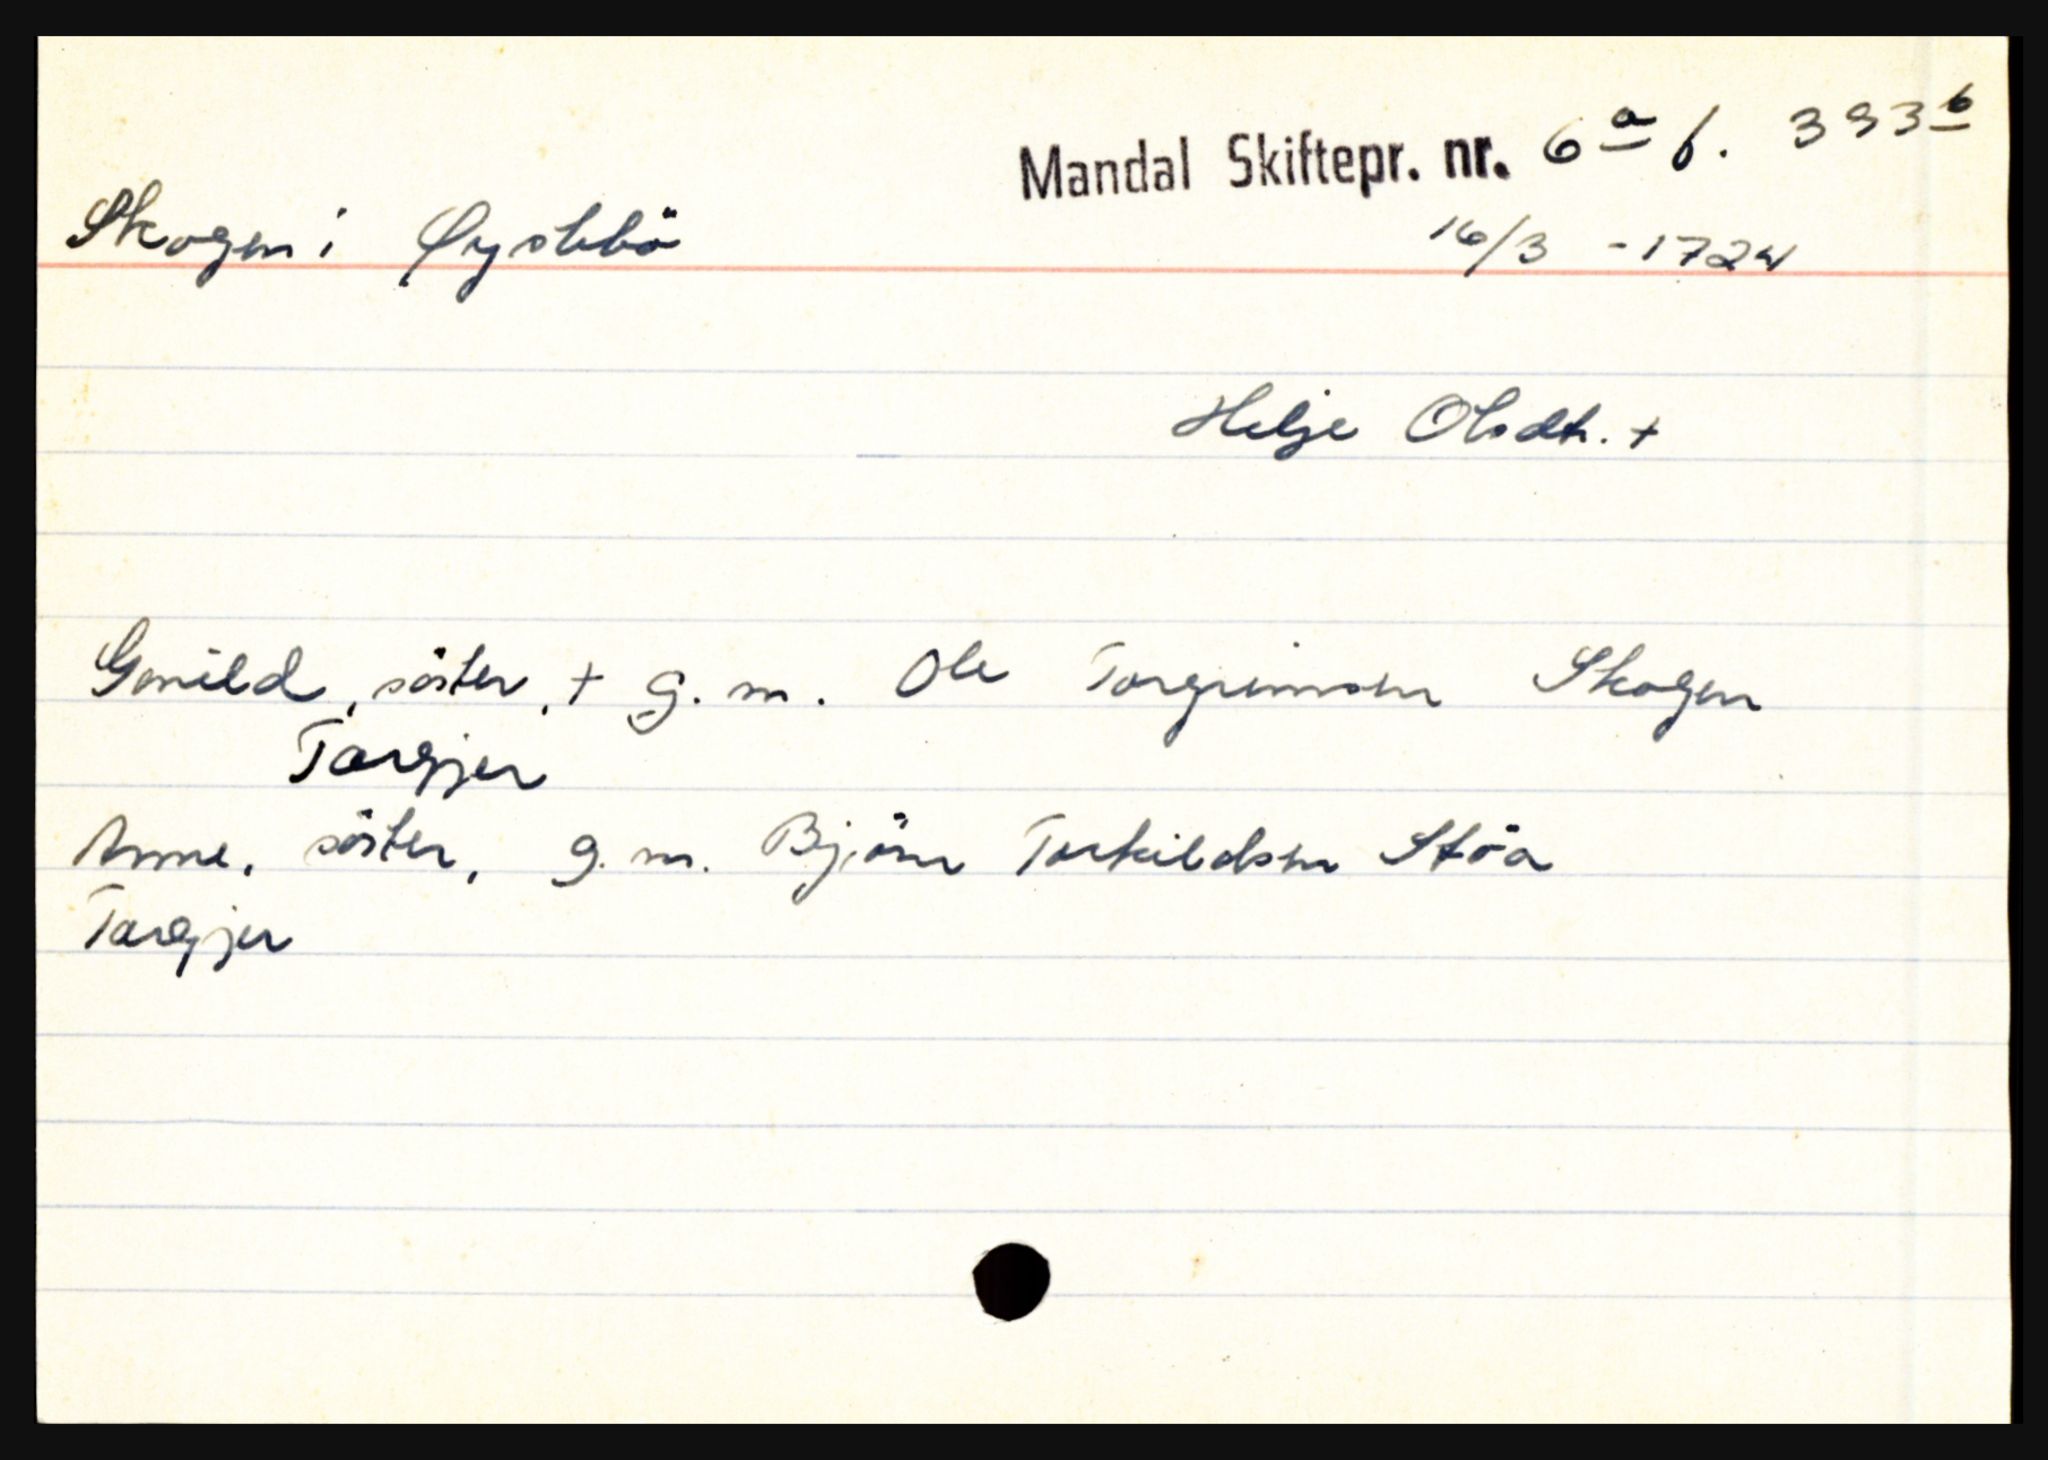 Mandal Skiftepr. nr. 6a f. 393b
Skogen i Øyslebö
16/3 - 1724
Helje Olsdt. +
Gonild, söster, + g. m. Ole Torgrimsen Skogen
Torgjer
Anne, söster, g. m. Björn Torkildsen Stöa
Torgjer